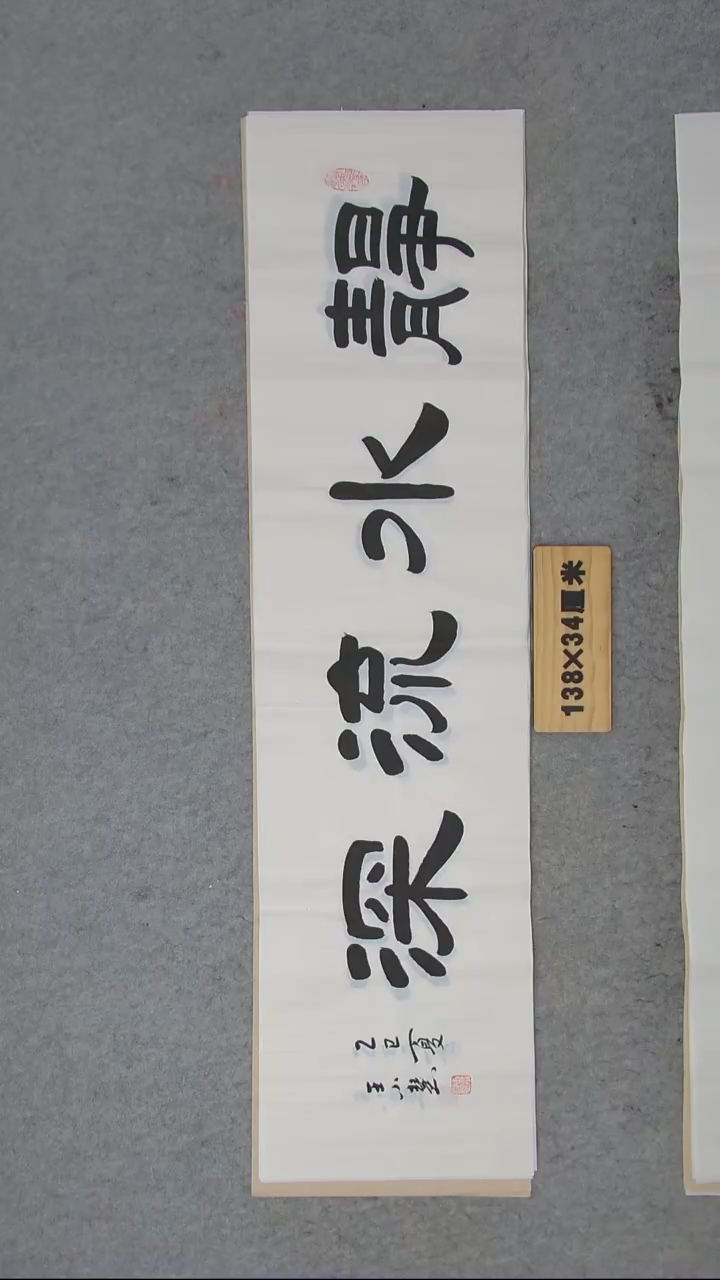 靜水流深
乙巳夏
王小
138×34厘米